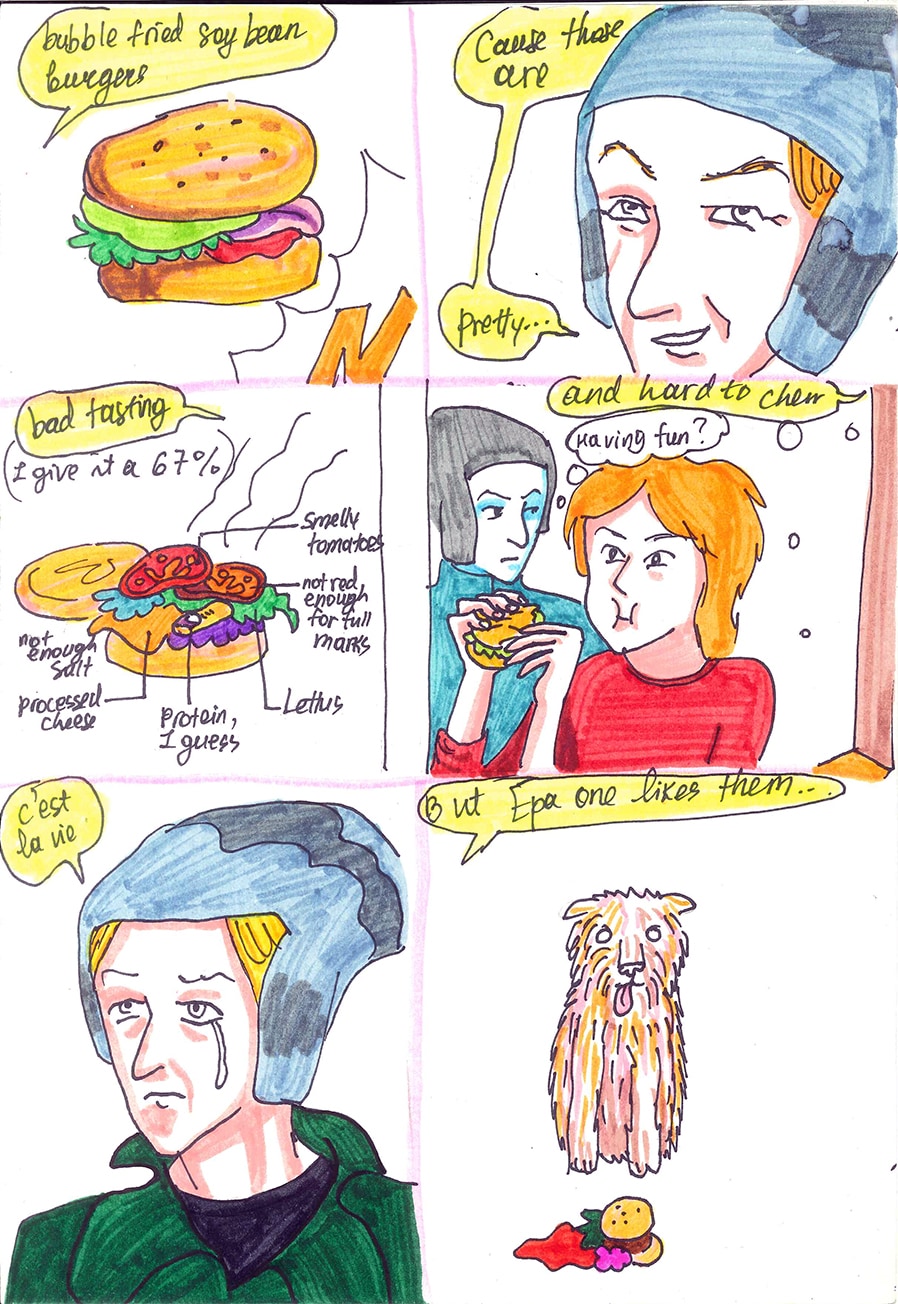 bubble fried soy bean
burgers
N
Cause those
are
pretty...
bad tasting
(I give it a 67%)
smelly
tomatoes
not red
enough
for full
marks
not
enough
salt
processed
cheese
protein,
I guess
Lettus
and hard to chew
Having fun?
c'est
la vie
But Epa one likes them...